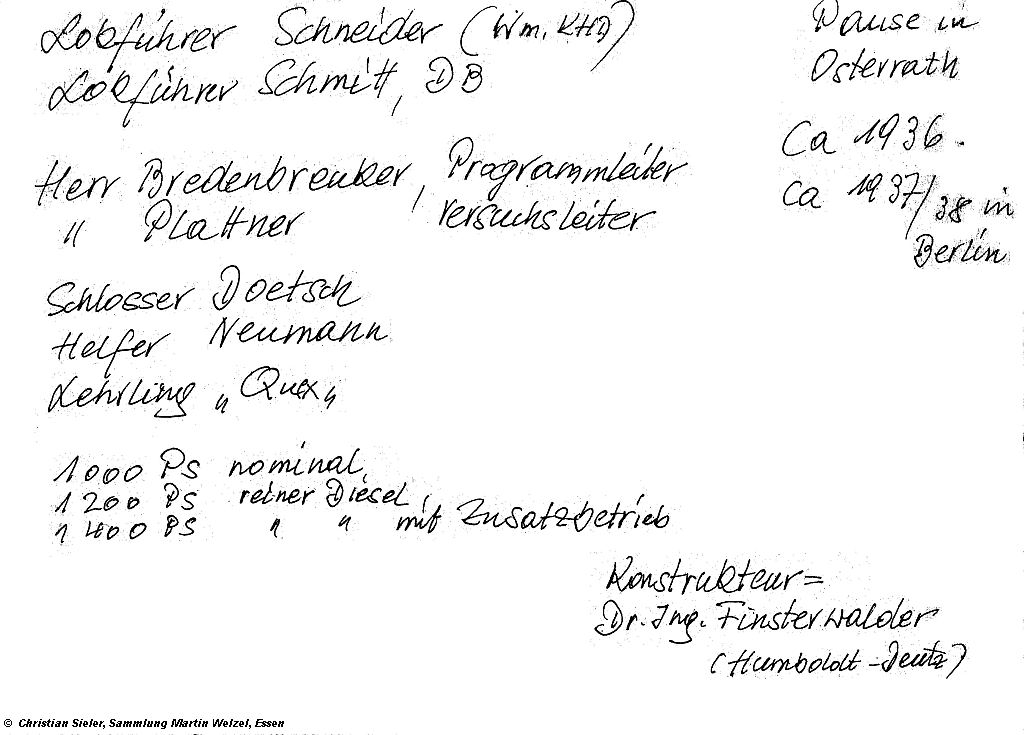 Lokführer Schneider (Wm. KHD)
Lokführer Schmitt, DB
Herr Bredenbreuker, Programmleiter
" Plattner , Versuchsleiter
Schlosser Doetsch
Helfer Neumann
Lehrling "Quex"
1000 PS nominal,
1200 PS reiner Diesel,
1400 PS " " mit Zusatzbetrieb
Pause in
Osterrath
Ca 1936.
Ca 1937/38 in
Berlin
Konstrukteur =
Dr. Ing. Finsterwalder
(Humboldt-Deutz)
© Christian Sieler, Sammlung Martin Welzel, Essen